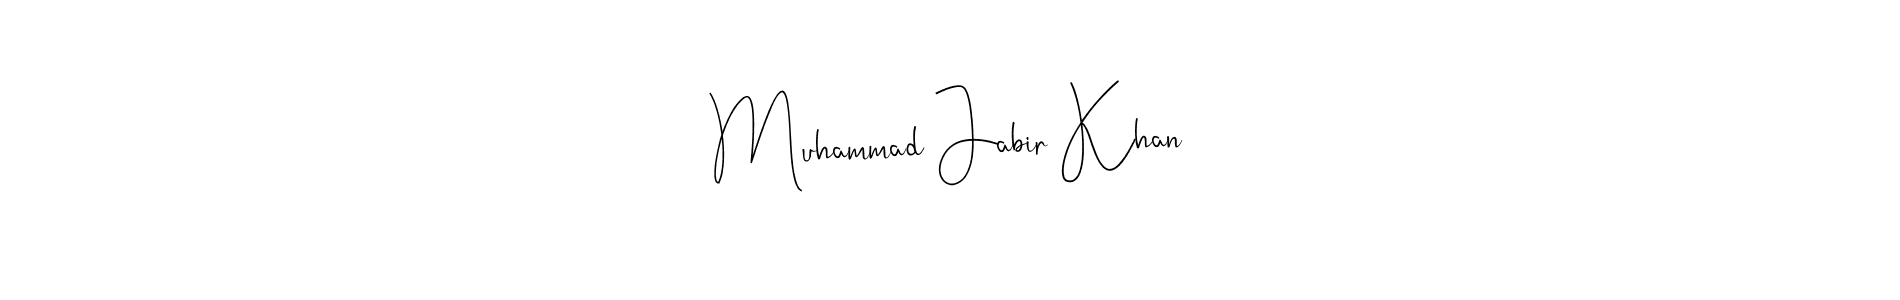 Muhammad Jabir Khan